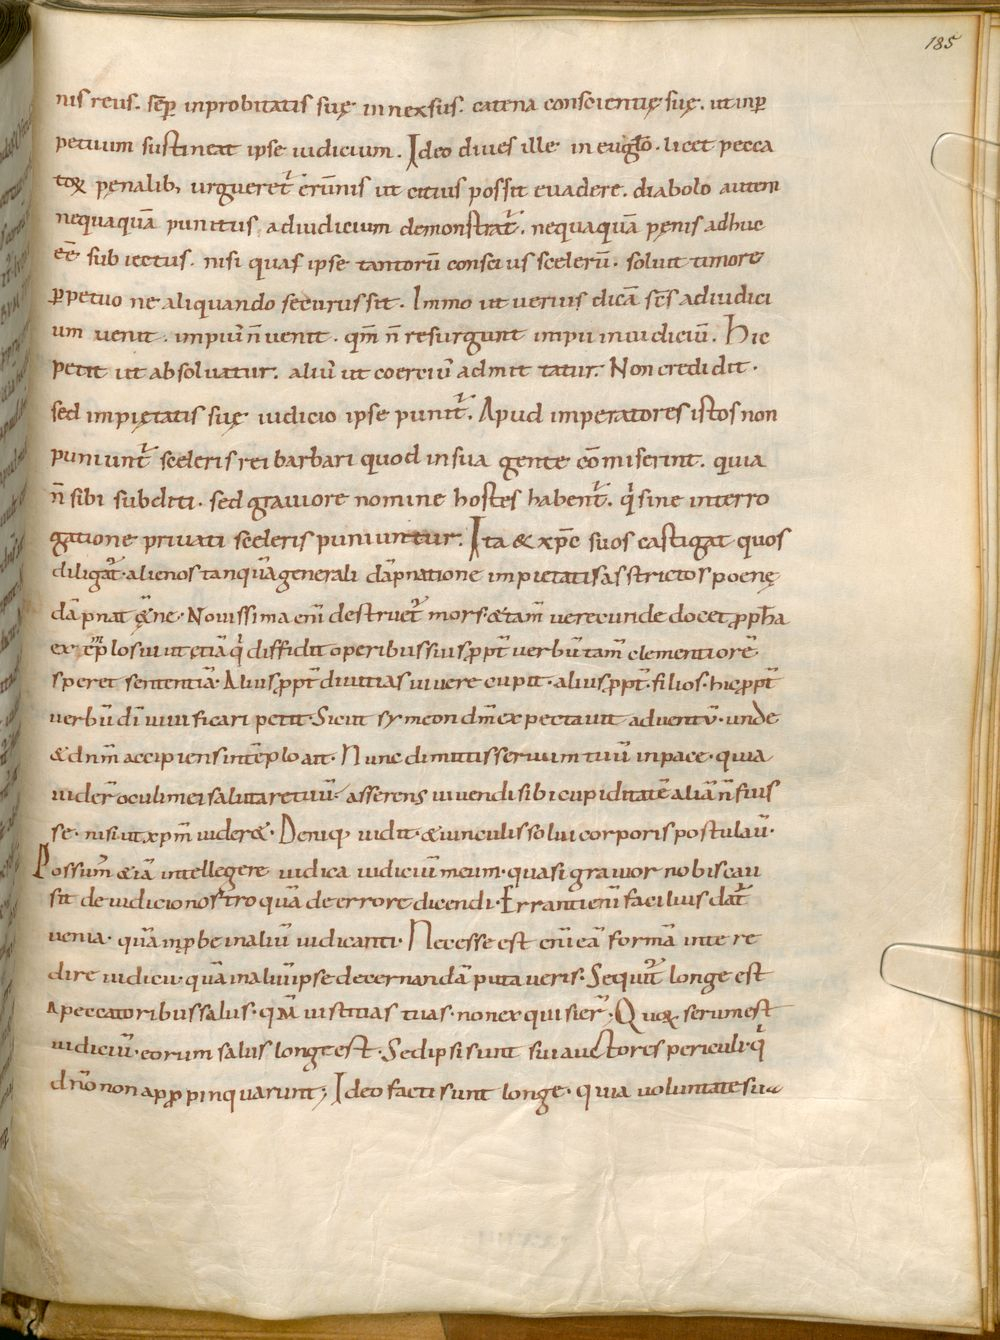 185
nis reus. sēp inprobitatis suę innexsus. catena conscientię suę. ut inp̱
petuum sustineat ipse iudicium. Ideo diues ille in eugl̄o. licet pecca
toꝝ penalib; urgueret᷑ erūnis ut citius possit euadere. diabolo autem
nequaquā punitus. ad iudicium demonstrat᷑. nequaquā pęnis adhuc
eē subiectus. nisi quas ipse tantorū conscius scelerū. soluit timore
ꝑpetuo ne aliquando securus sit. Immo ut uerius dicā sc̄s ad iudici
um uenit. impiuˢ n̄ uenit. qm̄ n̄ resurgunt impii in iudiciū. Hic
petit ut absoluatur. aliuˢ ut coerciuˢ admittatur. Non credidit.
sed impiętatis suę iudicio ipse punit᷑. Apud imperatores istos non
puniunt᷑ sceleris rei barbari quod in sua gente cōmiserint. quia
n̄ sibi subditi. sed grauiore nomine hostes habent᷑. qͥ sine interro
gatione priuati sceleris puniuntur. Ita & xp̄c suos castigat quos
diligat᷑. alienos tanquā generali dāpnatione impietatis asstrictos poenę
dāpnat ęt̄ne. Nouissima enī destruet᷑ mors. & tam̄ uerecunde docet ꝓph̄a
ex exēplo sui ut etiā qͥ diffidit operibus suis ꝓpt̄ uerbū tam̄ clementiorē
speret sententiā. Alius ꝓpt̄ diuitias uiuere cupit. alius ꝓpt̄ filios. hic ꝓpt̄
uerbū dī uiuificari petit. Sicut symeon dm̄ expectauit aduentū. unde
& dnm̄ accipiens in tēplo ait. Nunc dimittis seruum tuū in pace. quia
uider̄ oculi mei salutare tuū. asserens uiuendi sibi cupiditatē aliā n̄ fuis
se. nisi ut xpm̄ uider&. Deniq; uidit. & uinculis solui corporis postulau̅.
Possum᷒ & iā intellegere iudica iudiciū meum. quasi grauior nobis cau
sa sit de iudicio nostro quā de errore dicendi. Erranti enī facilius dat᷑
uenia. quā inꝓbe in aliū iudicanti. Necesse est enī eā formā inte re
dire iudicii. quā in alium ipse decernandā putaueris. Sequit᷑ longe est
a peccatoribus salus. qm̄ iustitias tuas. non exquisier̄. Quoꝝ serum est
iudiciū. eorum salus longe est. Sed ipsi sunt sui auctores periculi. qͥ
dn̄o non apꝓpinquarunt; Ideo facti sunt longe. quia uoluntate sua